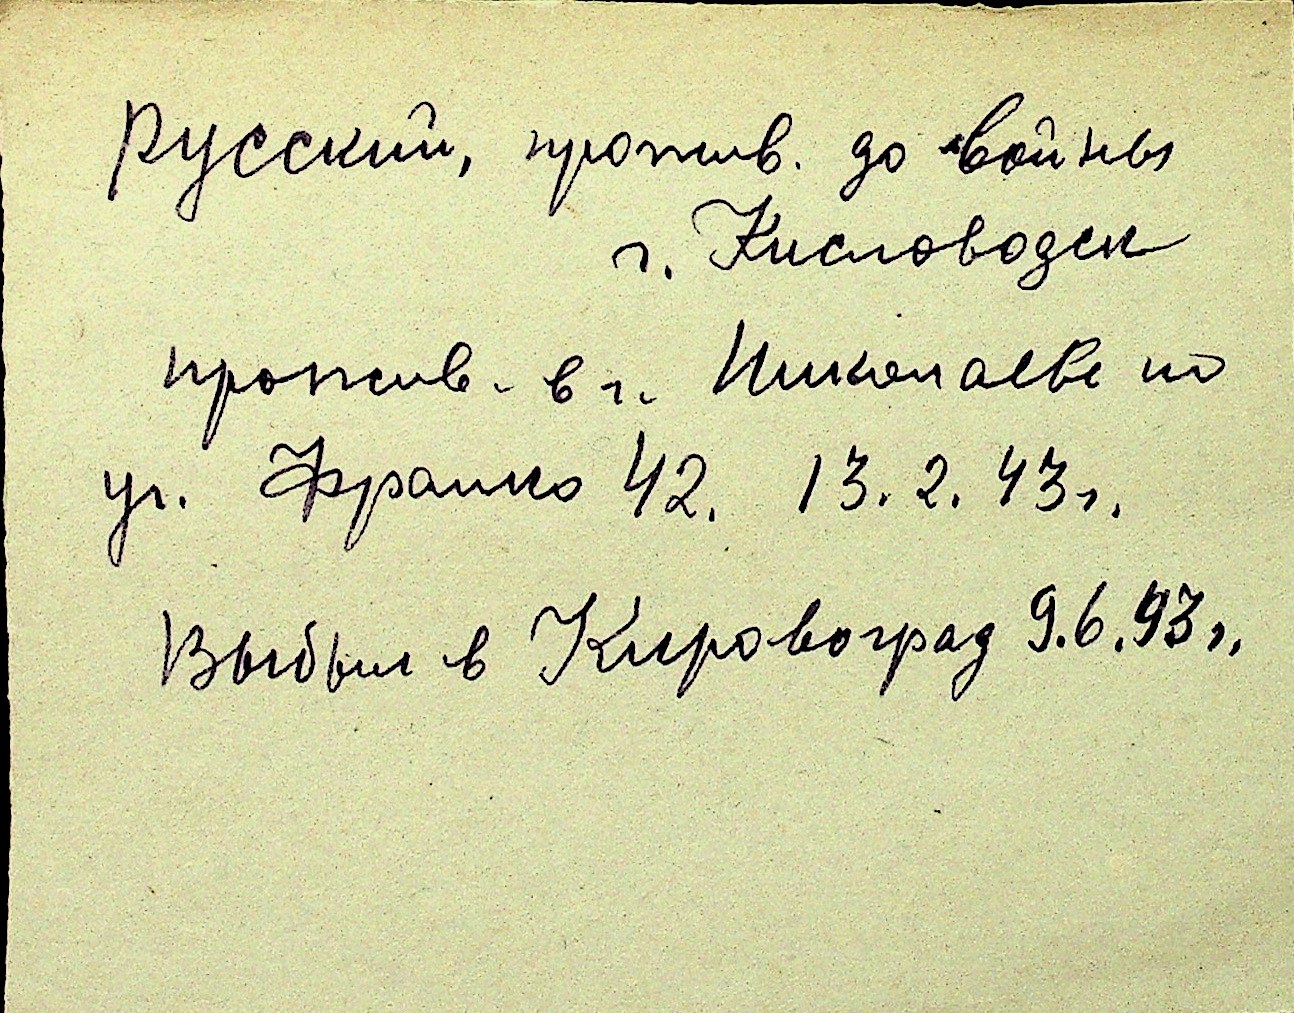 Русский, прожив. до войны
г. Кисловодск
прожив. в г. Николаеве по
ул. Франко 42. 13.2.43г.
Выбыл в Кировоград 9.6.43г.